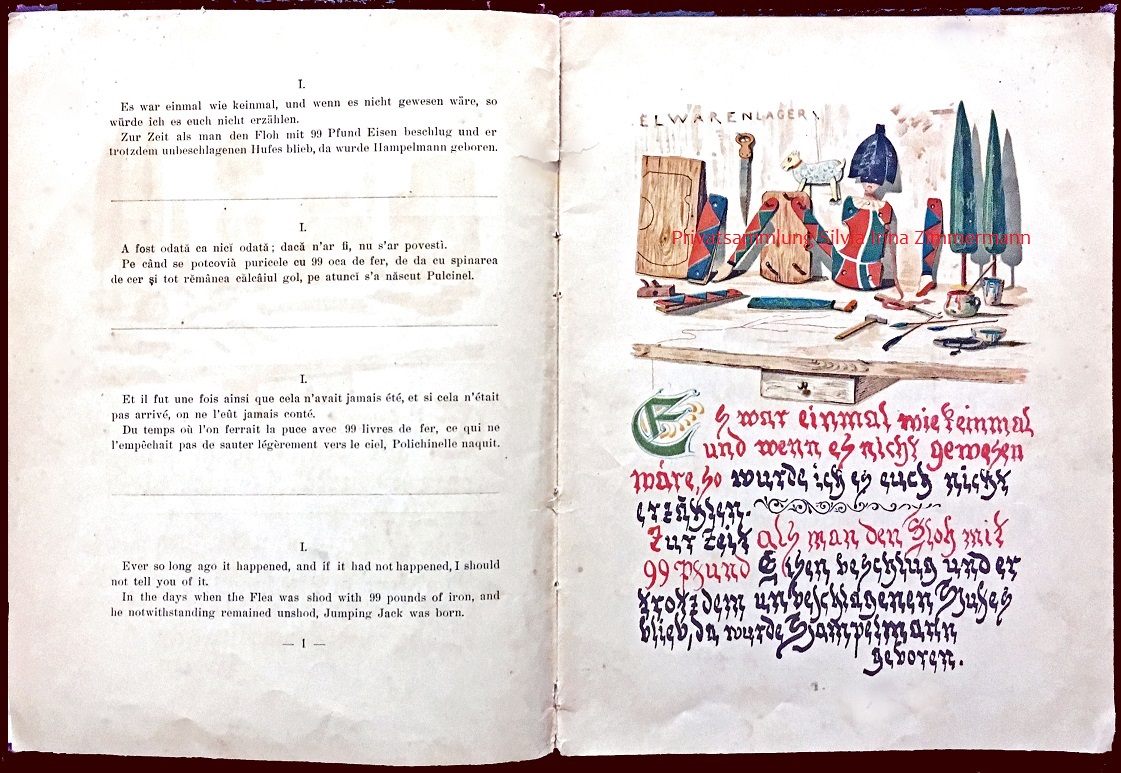 I.
Es war einmal wie keinmal, und wenn es nicht gewesen wäre, so
würde ich es euch nicht erzählen.
Zur Zeit als man den Floh mit 99 Pfund Eisen beschlug und er
trotzdem unbeschlagenen Hufes blieb, da wurde Hampelmann geboren.
I.
A fost odată ca nicĭ odată; dacă n'ar fi, nu s'ar povesti.
Pe când se potcovià puricele cu 99 oca de fer, de da cu spinarea
de cer și tot rĕmânea călcâiul gol, pe atuncĭ s'a născut Pulcinel.
I.
Et il fut une fois ainsi que cela n'avait jamais été, et si cela n'était
pas arrivé, on ne l'eût jamais conté.
Du temps où l'on ferrait la puce avec 99 livres de fer, ce qui ne
l'empêchait pas de sauter légèrement vers le ciel, Polichinelle naquit.
I.
Ever so long ago it happened, and if it had not happened, I should
not tell you of it.
In the days when the Flea was shod with 99 pounds of iron, and
he notwithstanding remained unshod, Jumping Jack was born.
— 1 —
ELWARENLAGER
Privatsammlung Silvia Irina Zimmermann
Es war einmal wie keinmal
und wenn es nicht gewesen
wäre, so wurde ich es euch nicht
erzählen.
Zur Zeit als man den Floh mit
99 Pfund Eisen beschlug und er
trotzdem unbeschlagenen Hufes
blieb, da wurde Hampelmann
geboren.